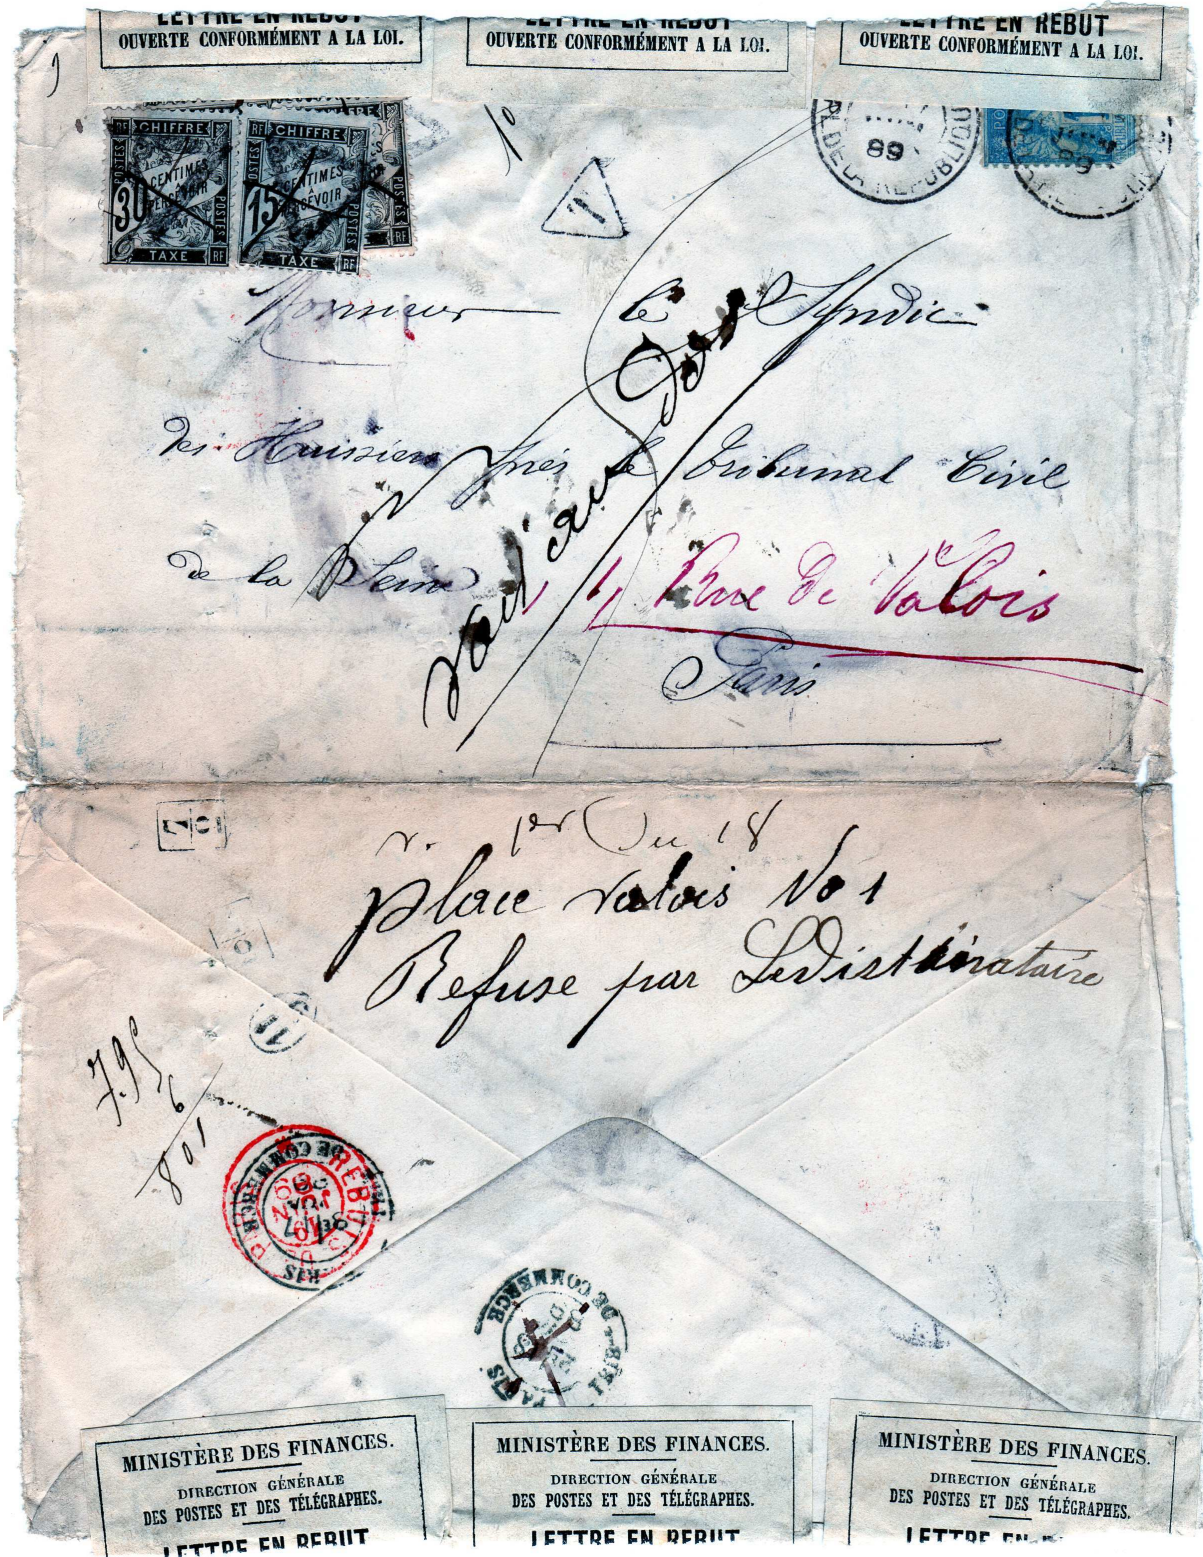 LETTRE EN REBUT
OUVERTE CONFORMÉMENT A LA LOI.
LETTRE EN REBUT
OUVERTE CONFORMÉMENT A LA LOI.
LETTRE EN REBUT
OUVERTE CONFORMÉMENT A LA LOI.
RF CHIFFRE
POSTES
30 CENTIMES
A PERCEVOIR
POSTES
TAXE RF
RF CHIFFRE
POSTES
15 CENTIMES
A PERCEVOIR
POSTES
TAXE RF
POSTES
RF
T
89
R. DE LA REPUBLIQU
89
Monsieur le Syndic
des Huissiers près le Tribunal Civil
de la Seine, 1, Rue de Valois
Paris
v. 1er Du 18
place valois No 1
Refuse par Le Distinataire
795
6
801
REBUTS
DE COMMERCE
PARIS
TRIB. DE COMMERCE
PARIS
MINISTÈRE DES FINANCES.
DIRECTION GÉNÉRALE
DES POSTES ET DES TÉLÉGRAPHES.
LETTRE EN REBUT
MINISTÈRE DES FINANCES.
DIRECTION GÉNÉRALE
DES POSTES ET DES TÉLÉGRAPHES.
LETTRE EN REBUT
MINISTÈRE DES FINANCES.
DIRECTION GÉNÉRALE
DES POSTES ET DES TÉLÉGRAPHES.
LETTRE EN